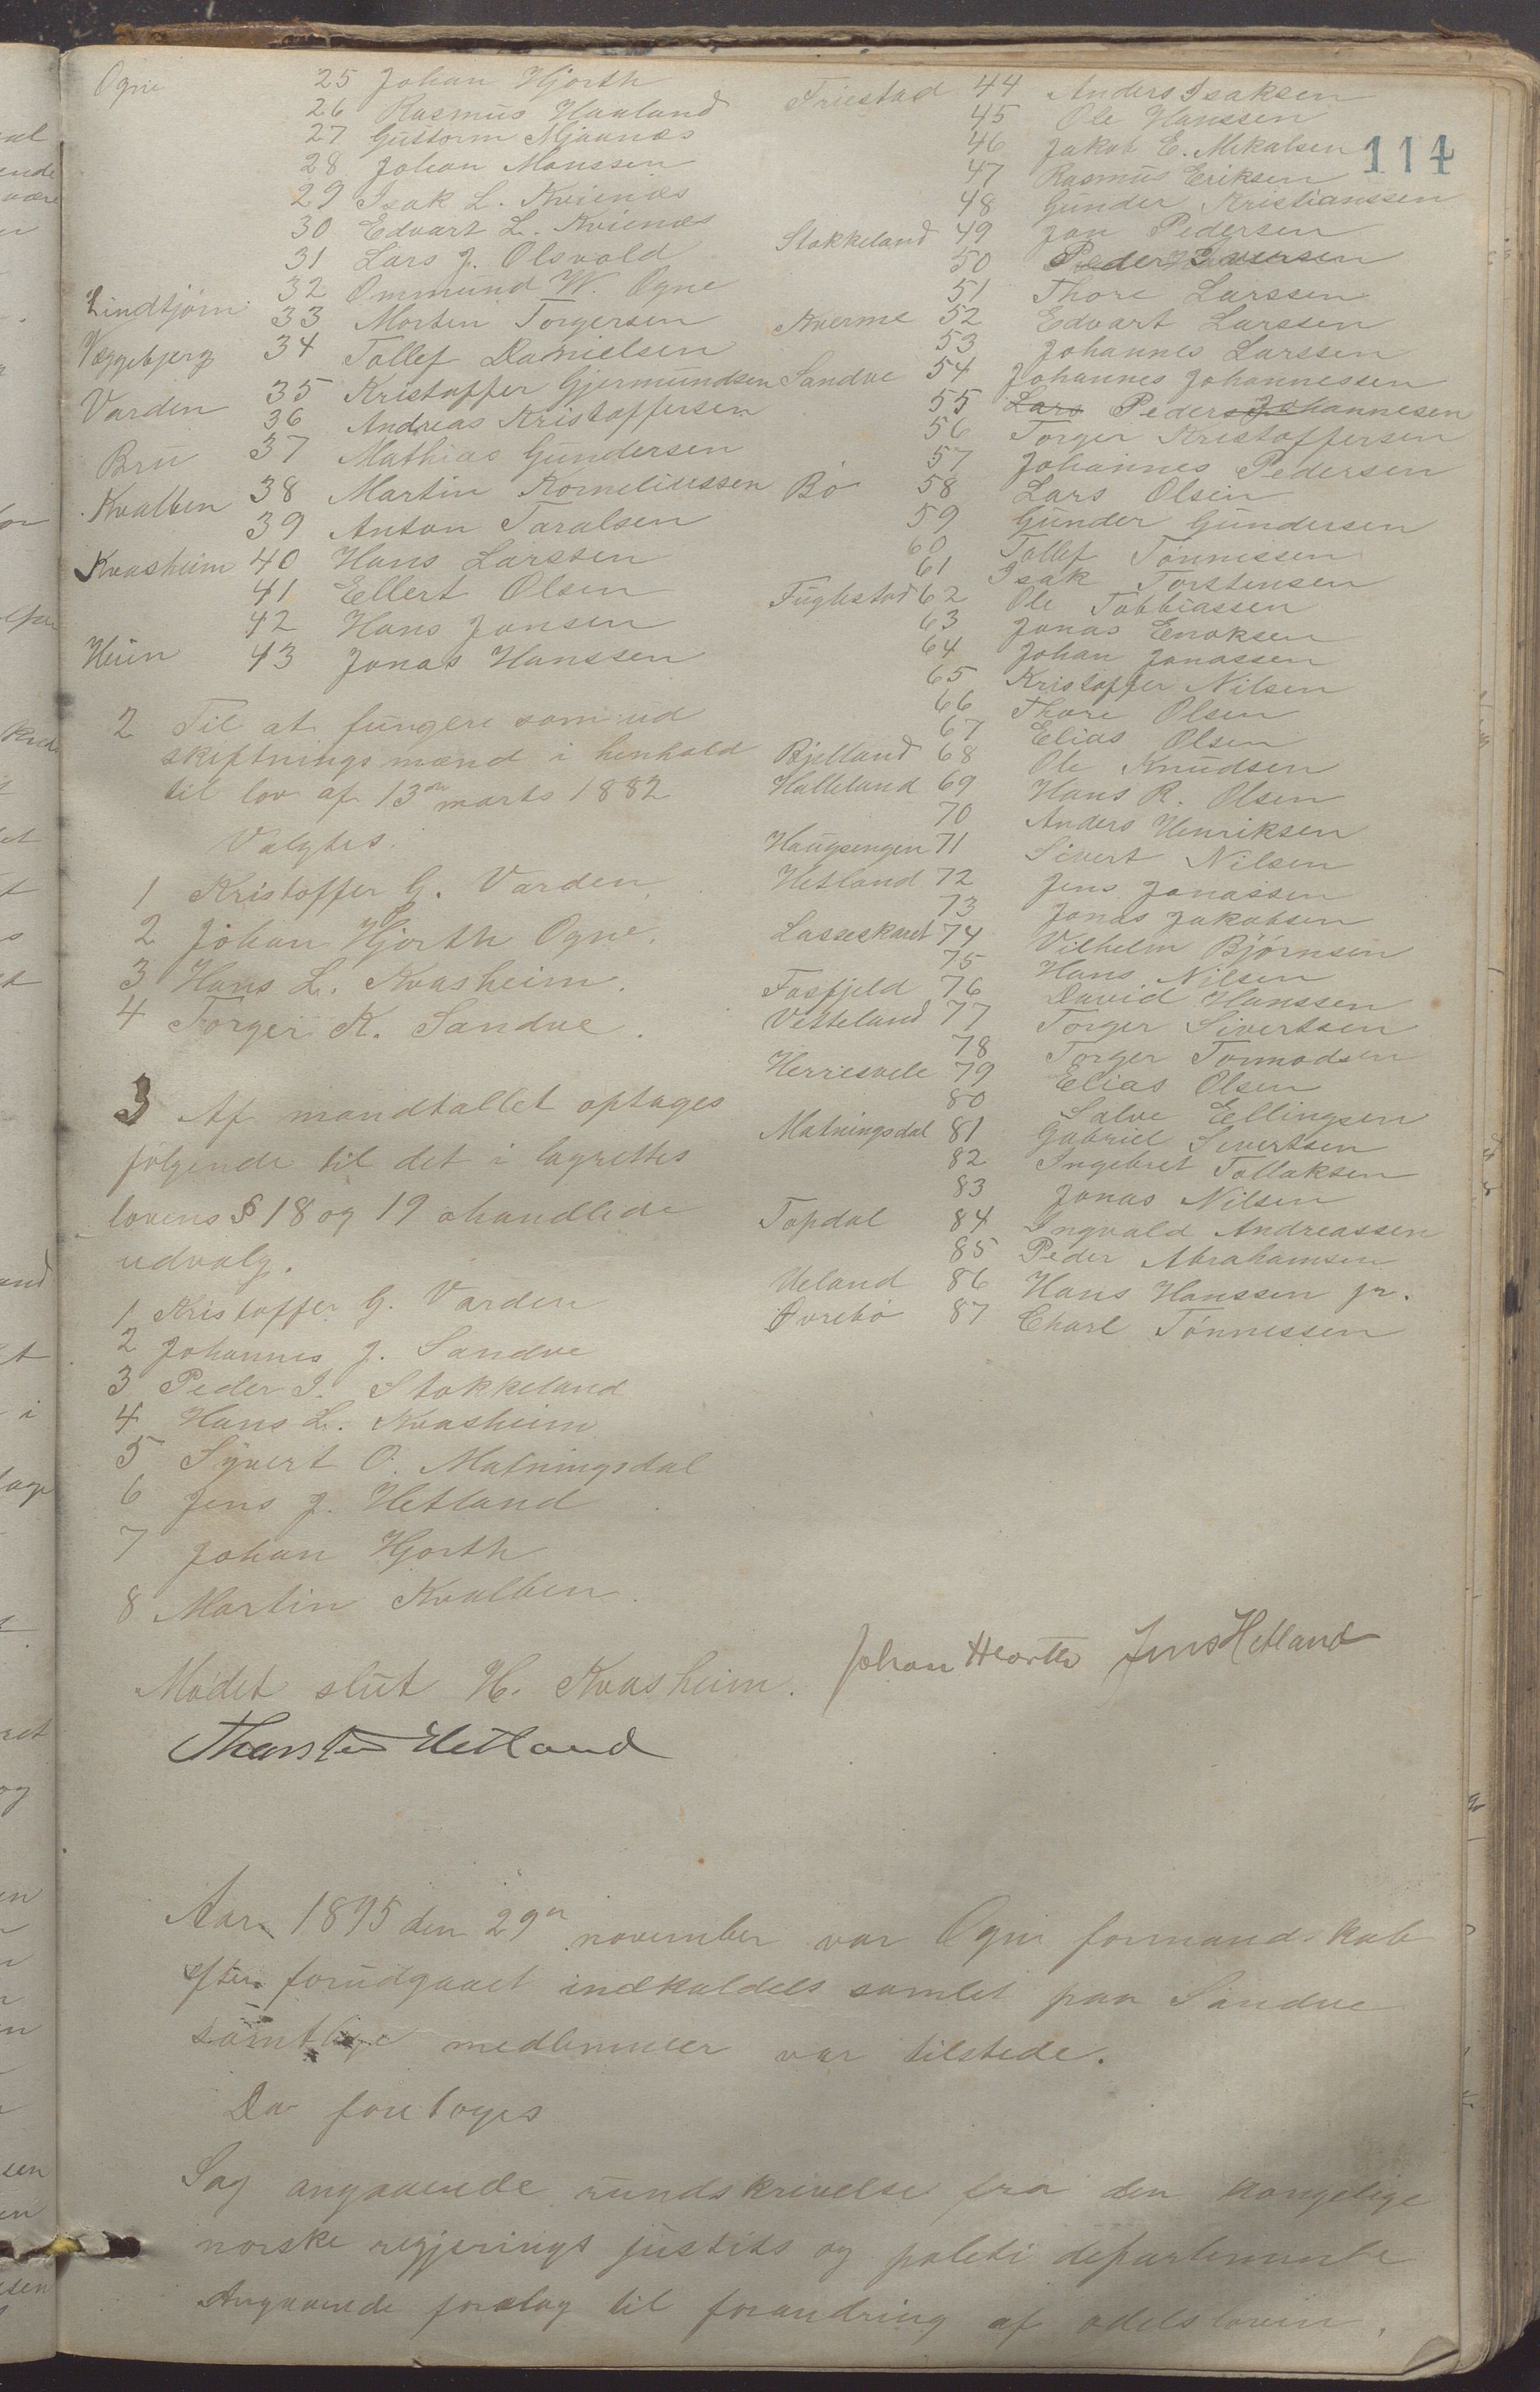 114
Ogne 25 Johan Hjorth
26 Rasmus Haaland
27 Guttorm Mjaanæs
28 Johan Monssen
29 Isak L. Kvienæs
30 Edvart L. Kvienæs
31 Lars J. Olsvold
32 Ommund W. Ogne
Lindtjörn 33 Morten Torgersen
Væggebjerg 34 Tollef Danielsen
Varden 35 Kristoffer Gjermundsen
36 Andreas Kristoffersen
Bru 37 Mathias Gundersen
Kvalben 38 Martin Korneliussen
39 Anton Taralsen
Kvasheim 40 Hans Larssen
41 Ellert Olsen
42 Hans Jansen
Hein 43 Jonas Hanssen
2 Til at fungere som ud
skiftningsmænd i henhold
til lov af 13de marts 1882
Valgtes.
1 Kristoffer G. Varden
2 Johan Hjorth Ogne.
3 Hans L. Kvasheim.
4 Torger K. Sandve.
3 Af mandtallet optages
følgende til det i lagrettes
lovens § 18 og 19 ohandlede
udvalg.
1 Kristoffer G. Varden
2 Johannes J. Sandve
3 Peder I. Stokkeland
4 Hans L. Kvasheim
5 Syvert O. Matningsdal
6 Jens J. Hetland
7 Johan Hjorth
8 Martin Kvalben.
Friestad 44 Anders Isaksen
45 Ole Hanssen
46 Jakob E. Mikalsen
47 Rasmus Eriksen
48 Gunder Kristianssen
Stokkeland 49 Jon Pedersen
50 Peder Iversen
51 Thore Larssen
Kverme 52 Edvart Larssen
53 Johannes Larssen
Sandve 54 Johannes Johannessen
55 Lars Peder Johannesen
56 Torger Kristoffersen
57 Johannes Pedersen
Bö 58 Lars Olsen
59 Gunder Gundersen
60 Tollef Tönnessen
61 Isak Torstensen
Fuglestad 62 Ole Tobbiassen
63 Jonas Enoksen
64 Johan Jonassen
65 Kristoffer Nilsen
66 Thore Olsen
67 Elias Olsen
Bjelland 68 Ole Knudsen
Hälleland 69 Hans R. Olsen
70 Anders Henriksen
Haugsengen 71 Sivert Nilsen
Hetland 72 Jens Jonassen
73 Jonas Jakobsen
Lasseskaret 74 Vilhelm Björnsen
75 Hans Nilsen
Fosfjeld 76 David Hanssen
Vetteland 77 Torger Sivertsen
78 Torger Tormodsen
Herresvele 79 Elias Olsen
80 Salve Ellingsen
Matningsdal 81 Gabriel Sivertsen
82 Ingebret Tollaksen
83 Jonas Nilsen
Topdal 84 Ingvald Andreassen
85 Peder Abrahamsen
Ueland 86 Hans Hanssen jr.
Övrebö 87 Charl Tönnessen
Mødet slut H. Kvasheim. Johan Hiorth Jens Hetland
Thorsten Hetland
Aar 1895 den 29de november var Ogne formandskab
efter forudgaaet indkaldels samlet paa Sandve
samtlige medlemmer var tilstede.
Da foretoges
Sag angaaende rundskrivelse fra den kongelige
norske regjerings justits og politi departemente
Angaaende forslag til forandring af odelsloven.